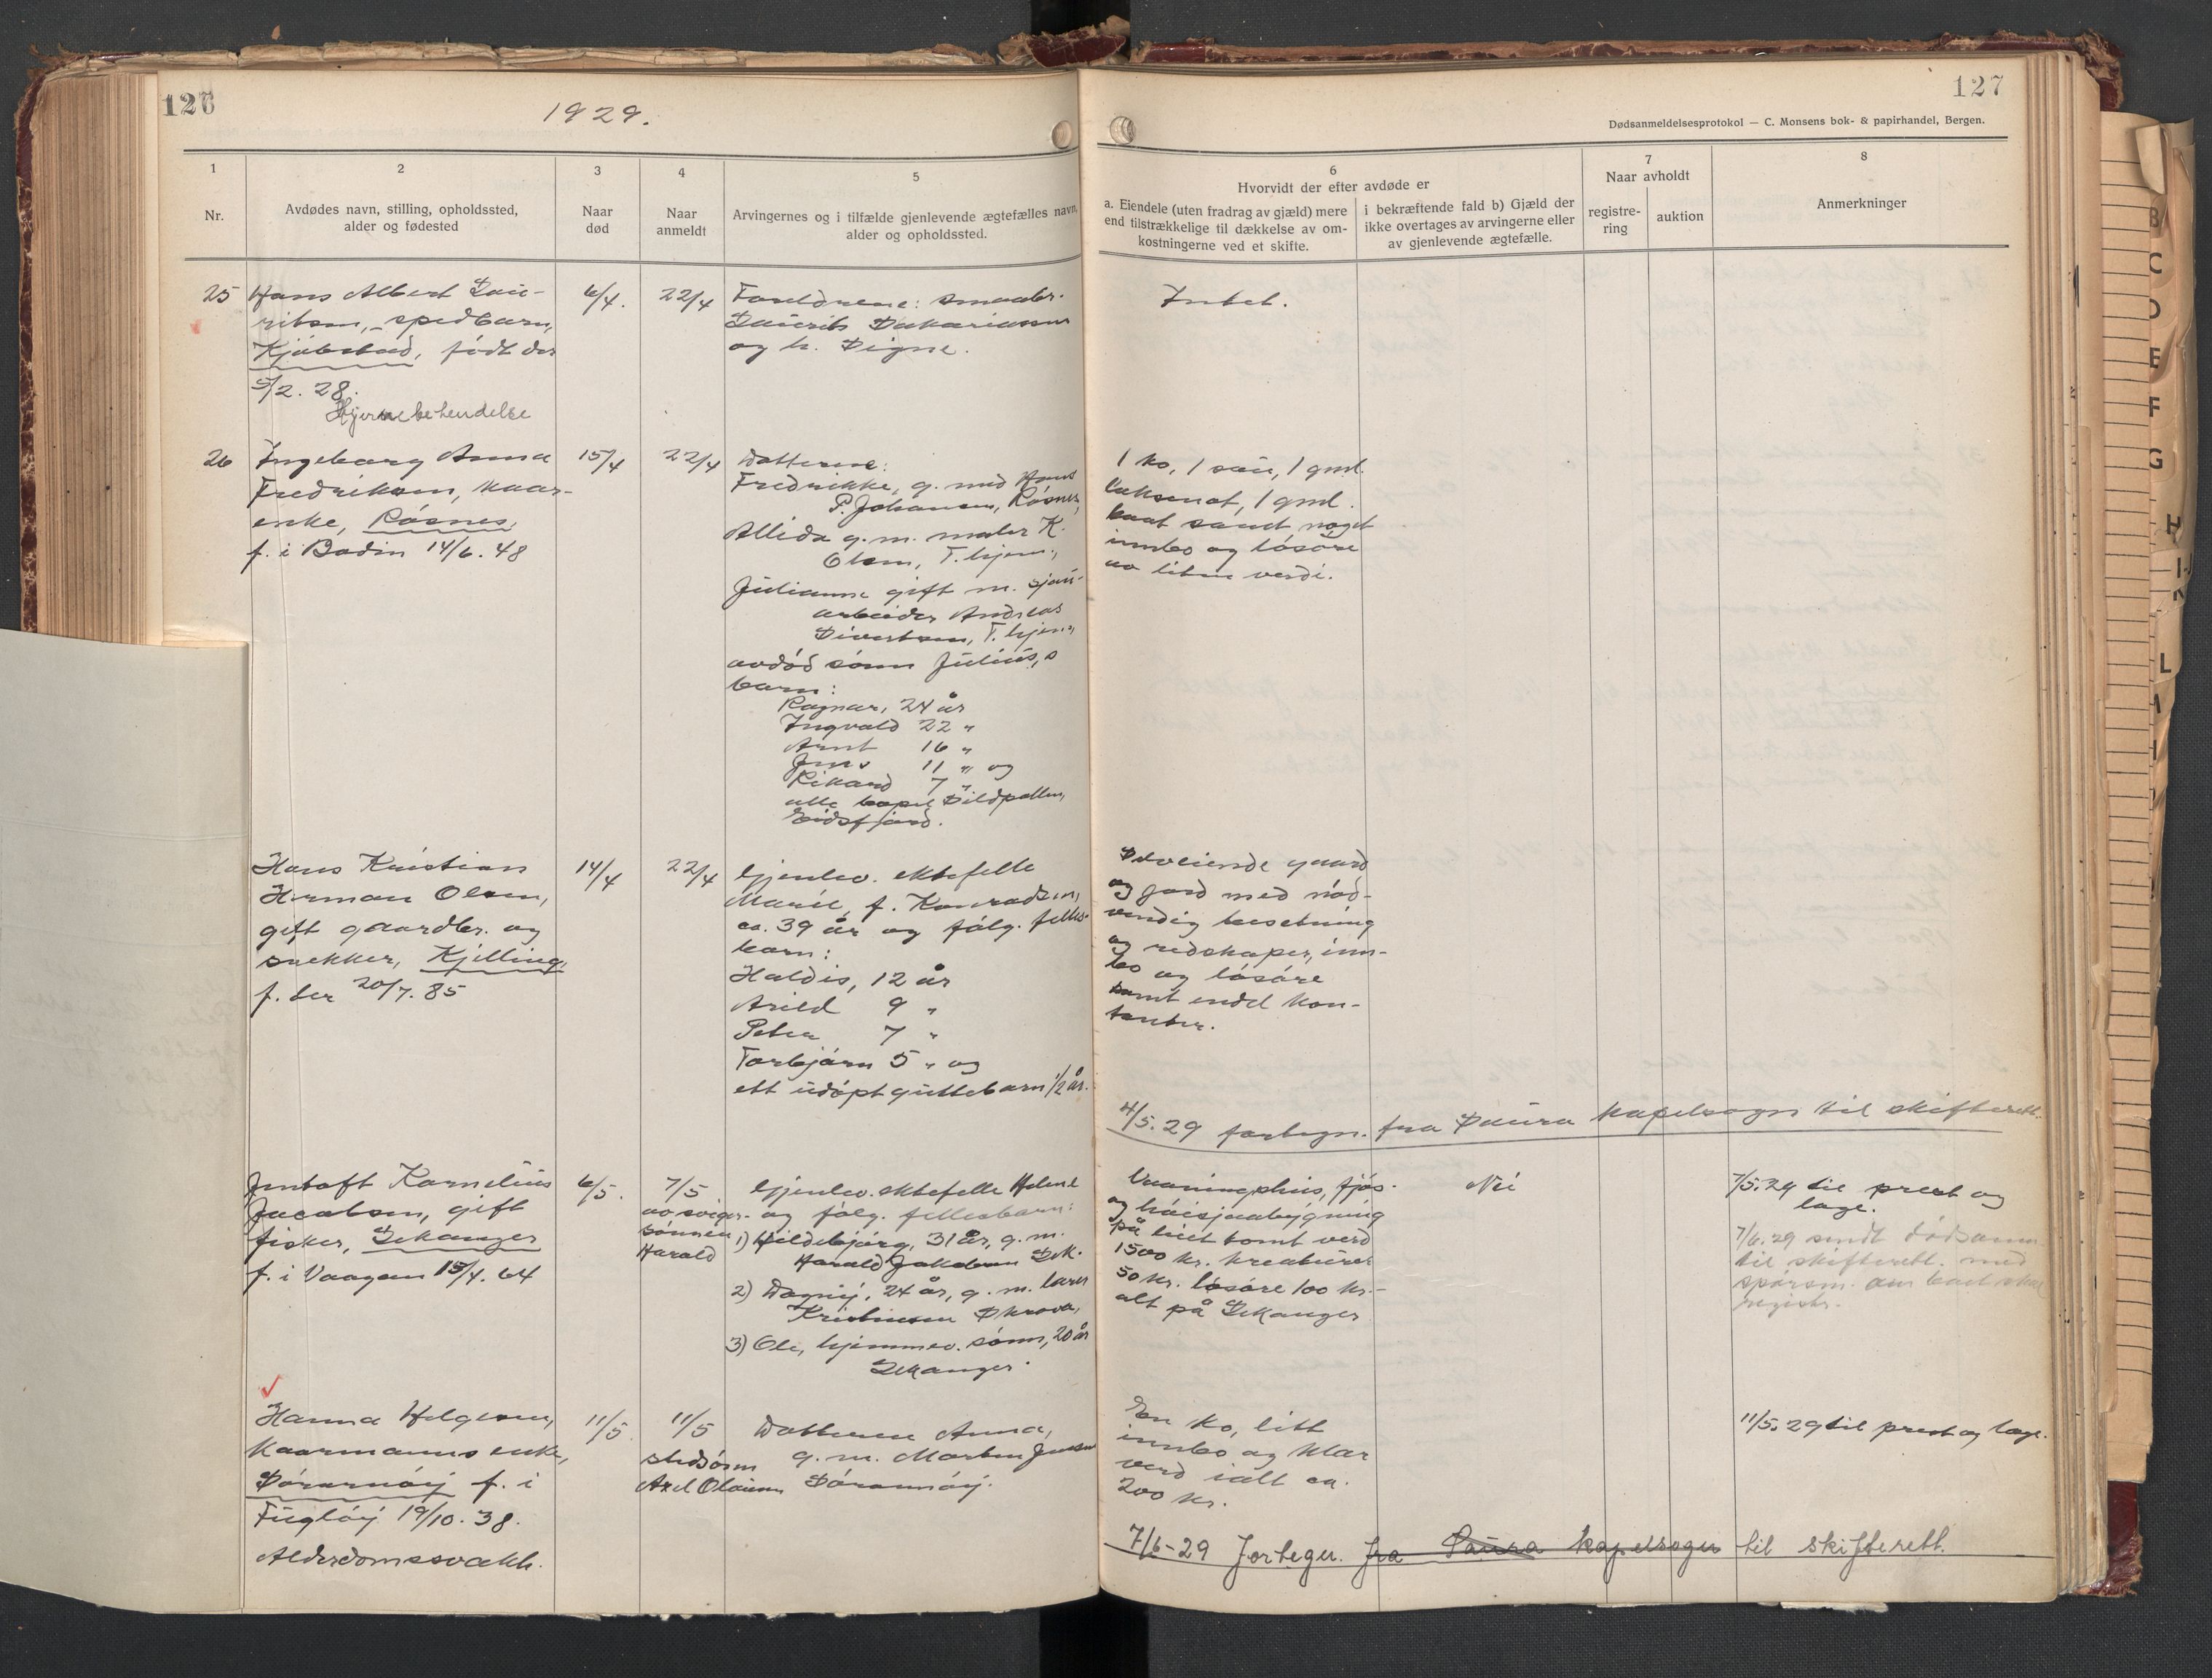 126
1929.
1
2
3
4
5
Nr.
Avdødes navn, stilling, opholdssted,
alder og fødested
Naar
død
Naar
anmeldt
Arvingernes og i tilfælde gjenlevende ægtefælles navn,
alder og opholdssted.
25
Hans Albert Lau-
ritsen, spedbarn,
Kjøbstad, født der
5/2. 28.
Hjernebehendelse
6/4.
22/4
Foreldrene: smaabr.
Laurits Sakariassen
og h. Signe.
26
Ingeborg Anna
Fredriksen, kaar-
enke, Røsnes,
f. i Bodin 14/6. 48
15/4
22/4
Døttrene:
Fredrikke, g. med Hans
P. Johansen, Røsnes,
Allida g. m. maler K.
Olsen, T. hjem,
Julianne gift m. sjau-
arbeider Andreas
Sivertsen, T. hjem,
avdød sønn Julius,s
barn:
Ragnar, 24 år
Ingvald 22 "
Arnt 16 "
Jens 11 " og
Rikard 7 "
alle bopel Sildpollen,
Eidsfjord.
Hans Kristian
Herman Olsen,
gift gaardbr. og
snekker, Kjelling,
f. der 20/7. 85
14/4
22/4
Gjenlev. ektefelle
Marie, f. Konradsen,
ca. 39 år og følg. felles-
barn:
Haldis, 12 år
Arild 9 "
Peter 7 "
Torbjørn 5 " og
ett udøpt guttebarn 1/2 år.
Jentoft Kornelius
Jacobsen, gift
fisker,
f. i Vaagan 15/4. 64
6/5.
7/5
av sviger-
sønnen
Harald
Gjenlev. ektefelle Helene
og følg. fellesbarn:
1) Hildebjørg, 31 år, g. m.
Harald Jakobsen
2) Dagny, 24 år, g. m. Lars
Kristiansen Skrova,
3) Ole, hjemmev. sønn, 20 år
✓
Hanna Helgesen,
kaarmanns enke,
Sørarnøy f. i
Fugløy 19/10. 38.
Alderdomssvakh.
11/5.
11/5
stedsønn
Axel Olaisen
Datteren Anna,
g. m. Morten Jensen
Sørarnøy.
127
Dødsanmeldelsesprotokol — C. Monsens bok- & papirhandel, Bergen.
6
Hvorvidt der efter avdøde er
a. Eiendele (uten fradrag av gjæld) mere
end tilstrækkelige til dækkelse av om-
kostningerne ved et skifte.
i bekræftende fald b) Gjæld der
ikke overtages av arvingerne eller
av gjenlevende ægtefælle.
7
Naar avholdt
registre-
ring
auktion
8
Anmerkninger
Intet.
1 ko, 1 sau, 1 gml.
laksenot, 1 gml.
baat samt noget
innbo og løsøre
av liten verdi.
Selveiende gaard
og jord med nød-
vendig besetning
og redskaper, inn-
bo og løsøre
samt endel kon-
tanter.
4/5. 29 fortegn. fra Saura kapelsogn til skifterett.
Vaaningshus, fjøs-
og høisjaabygning
på leiet tomt verd
1500 kr. kreaturer
50 kr. løsøre 100 kr. -
alt på
Nei
7/5. 29 til prest og
læge.
7/6. 29 sendt dødsanm
til skifterett. med
spørsm. om boet skal
registr.
En ko, litt
innbo og klær
verd ialt ca.
200 kr.
11/5. 29 til prest og læge.
7/6-29 Fortegn. fra Saura kapelsogn til skifterett.
B
C
D
E
F
G
H
L